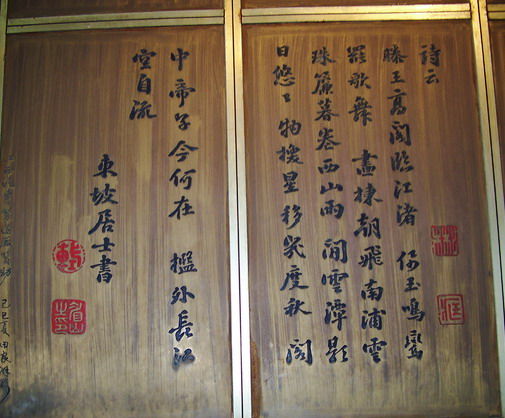 詩云
滕王高閣臨江渚 佩玉鳴鸞
罷歌舞 畫棟朝飛南浦雲
珠簾暮卷西山雨 閒雲潭影
日悠〻 物換星移幾度秋 閣
中帝子今何在 檻外長江
空自流
東坡居士書
己巳夏